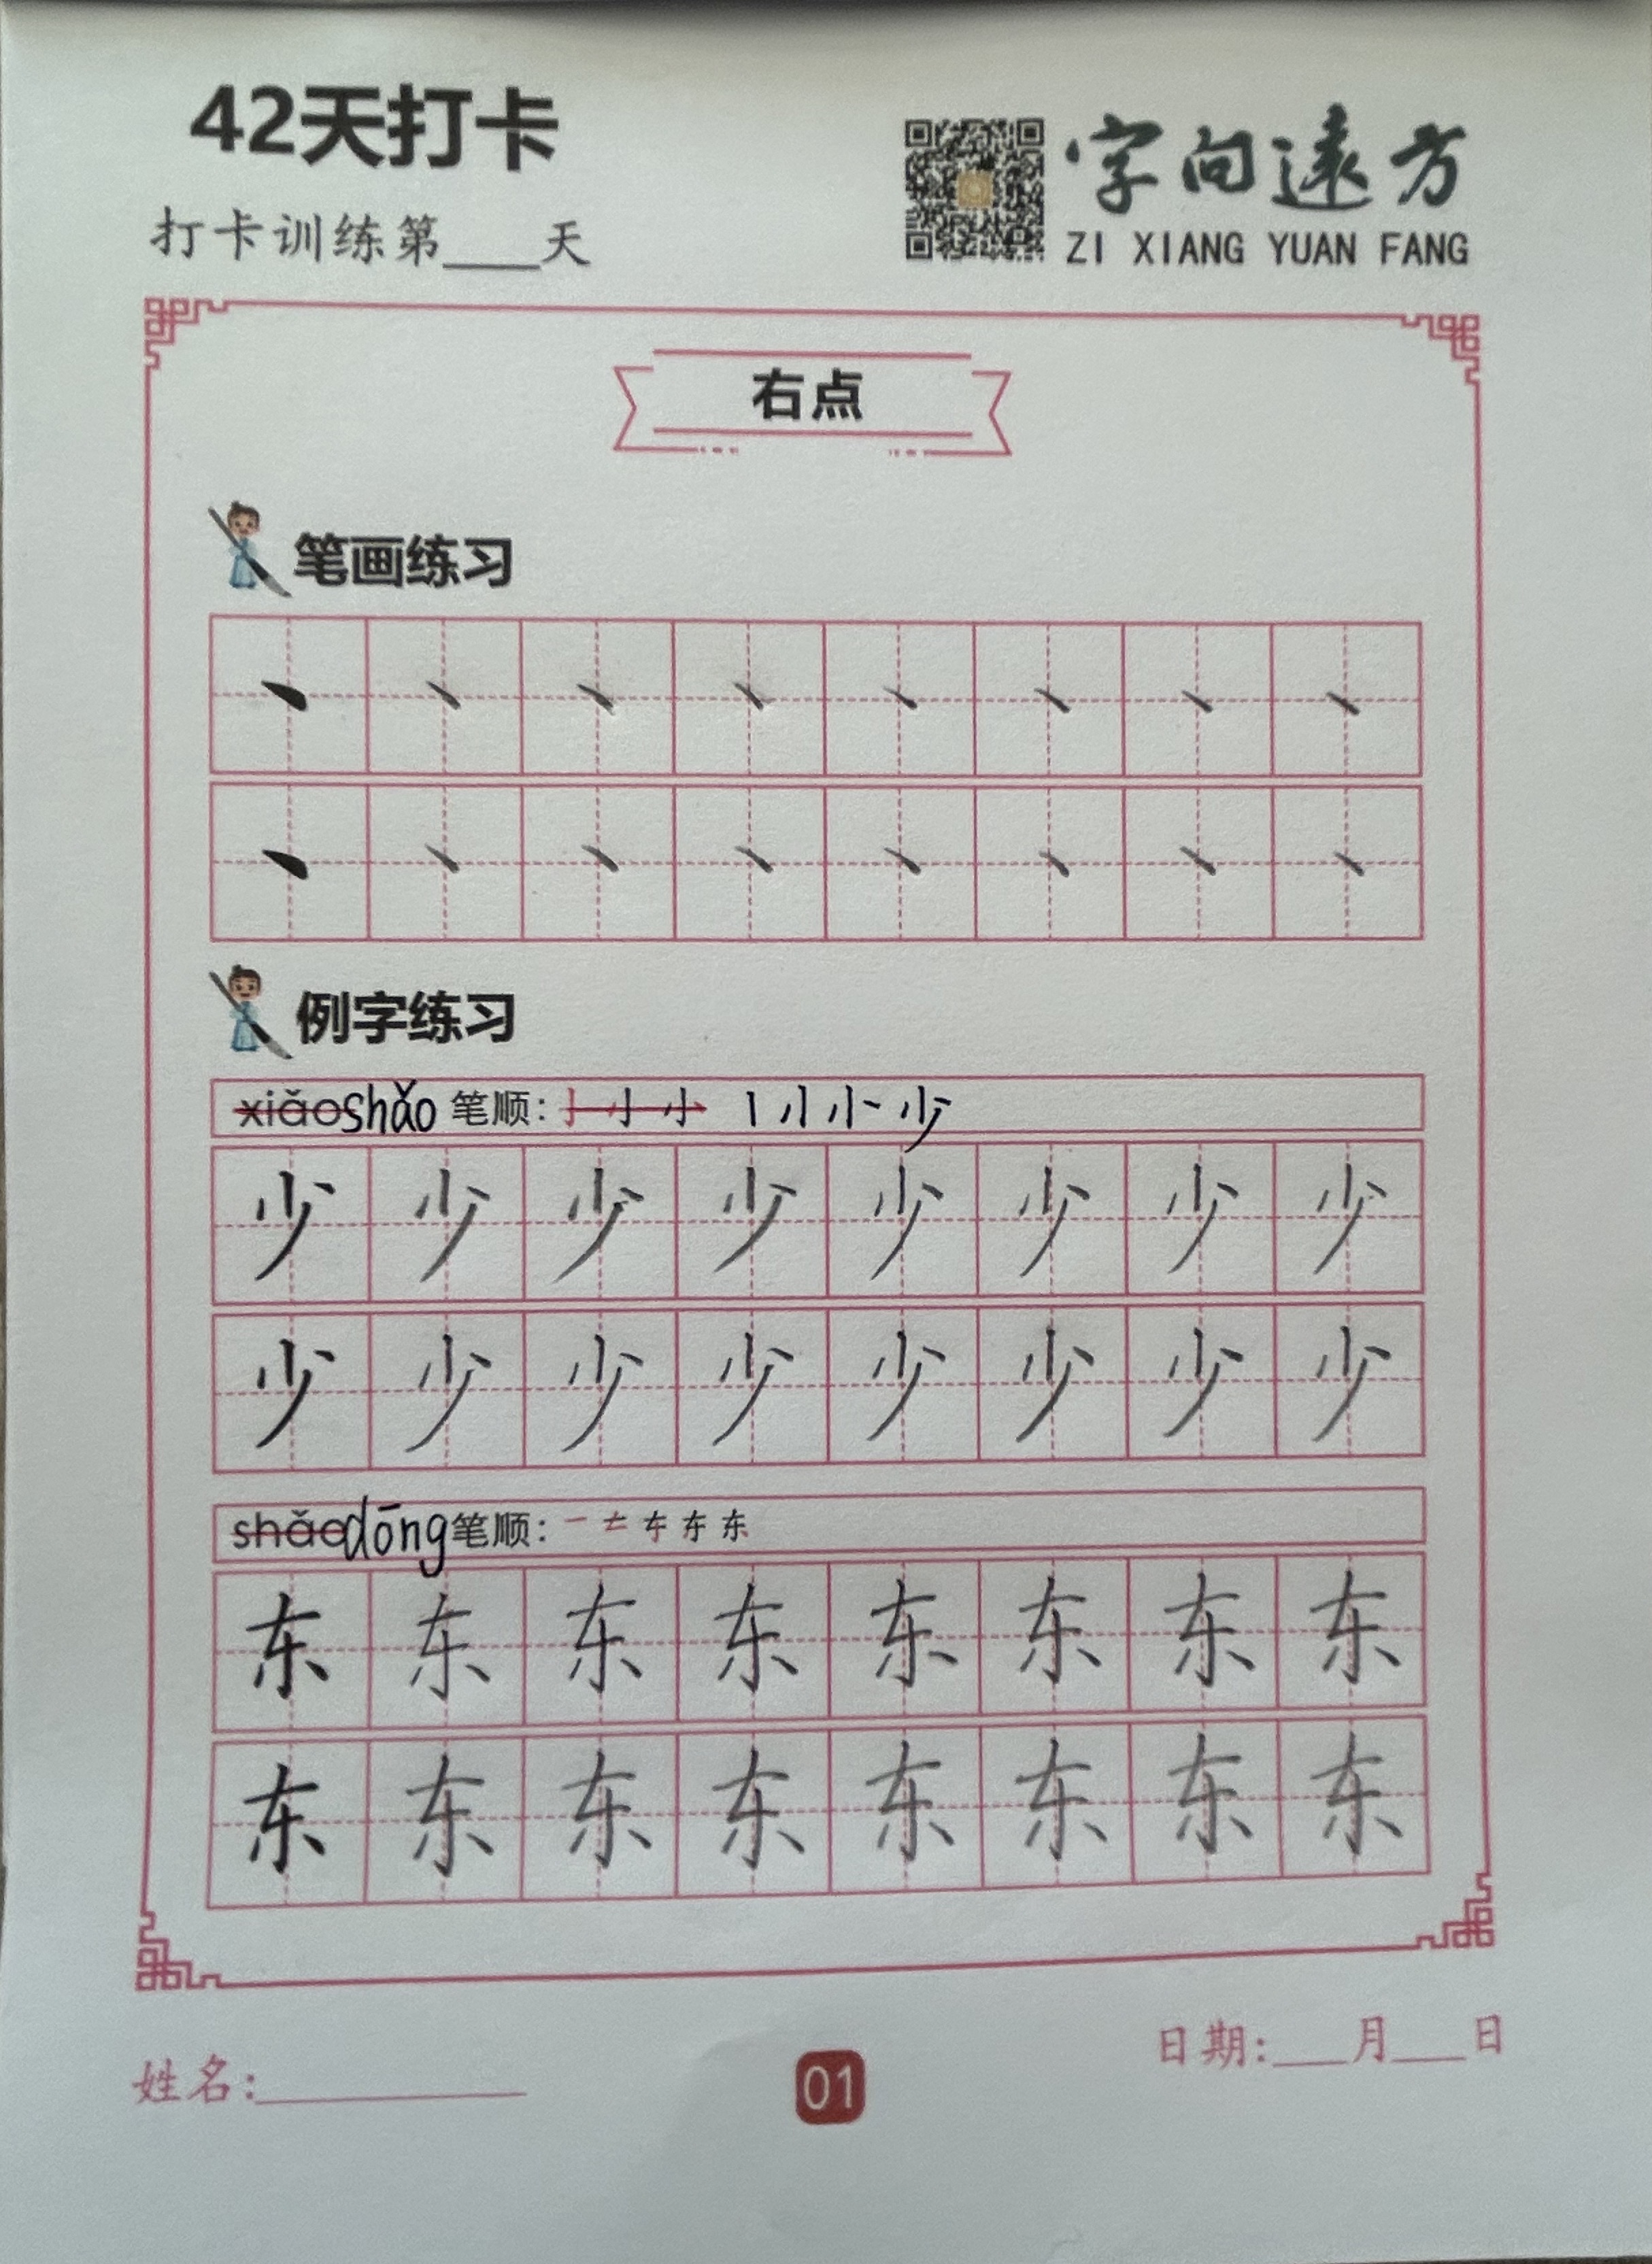 42天打卡
打卡训练第____天
字向遠方
ZI XIANG YUAN FANG
右点
笔画练习
丶 丶 丶 丶 丶 丶 丶 丶
丶 丶 丶 丶 丶 丶 丶 丶
例字练习
xiǎo shǎo 笔顺：亅 小 小 丨 小 少
少 少 少 少 少 少 少 少
少 少 少 少 少 少 少 少
shǎo dōng 笔顺：一 东
东 东 东 东 东 东 东 东
东 东 东 东 东 东 东 东
姓名：________
01
日期：___月___日